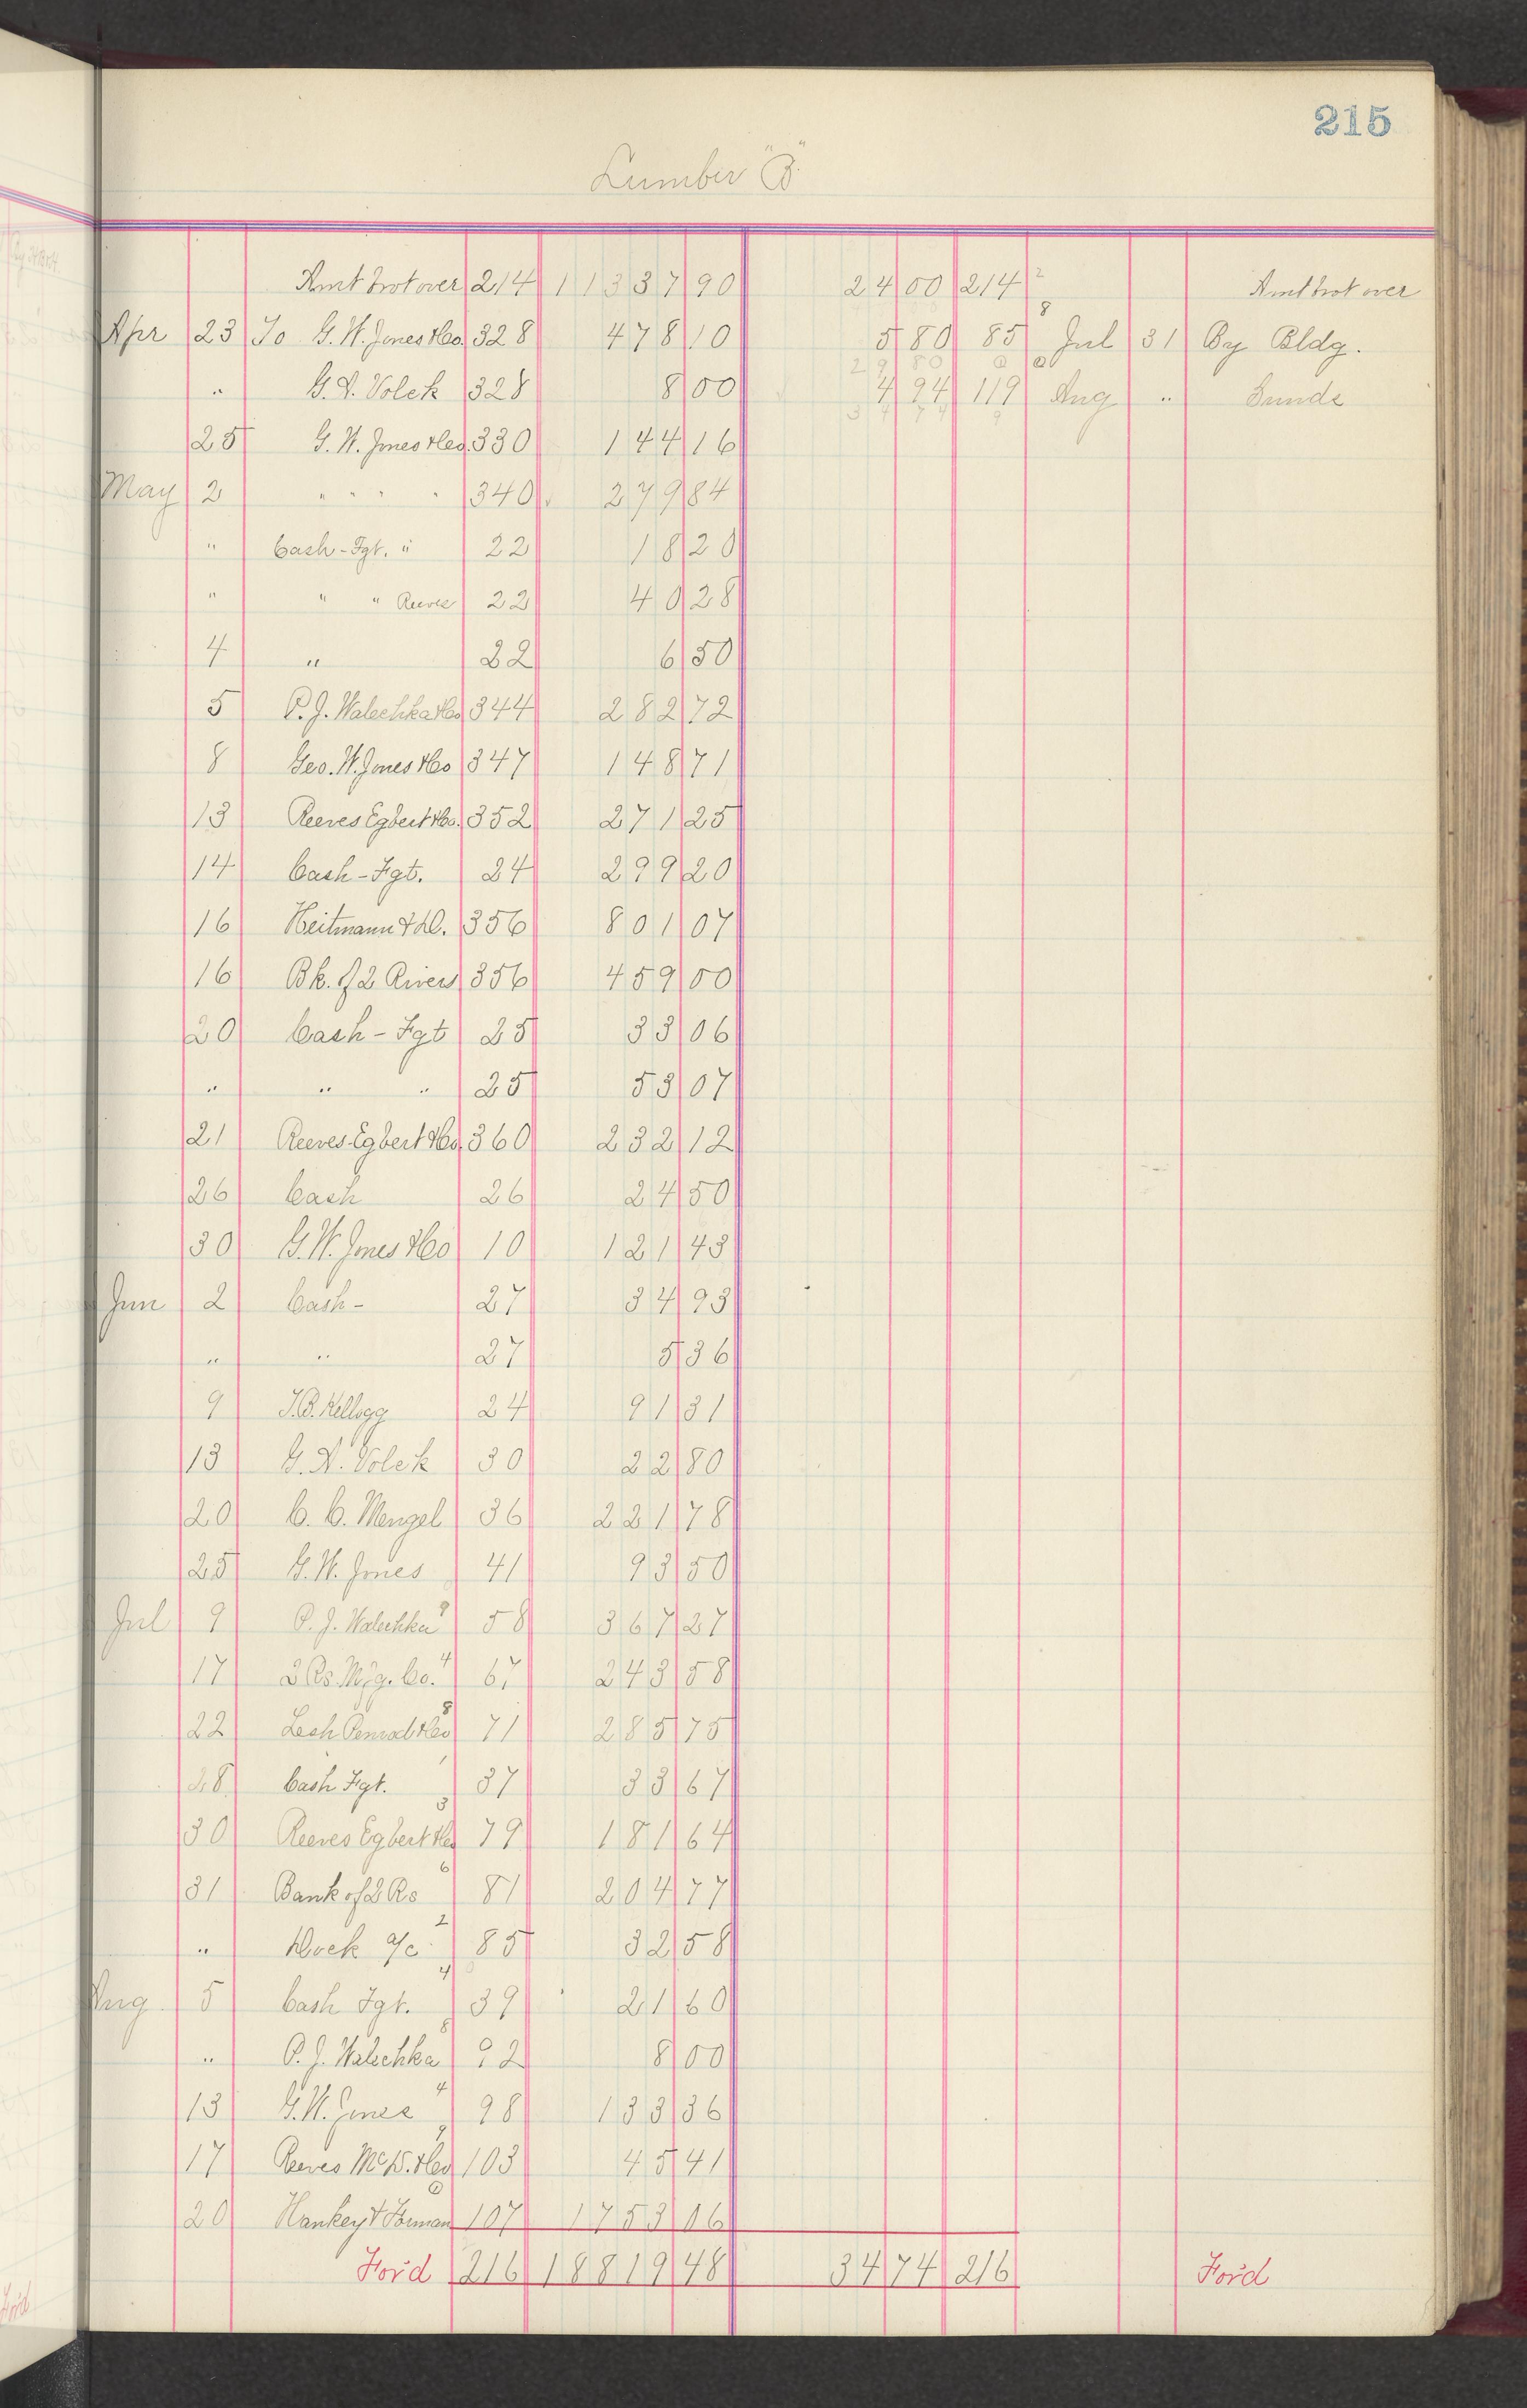 215
Lumber "B"
Amt brot over 214 11337 90 24 00 214 2 Amt brot over
Apr 23 To G. W. Jones & Co. 328 478 10 5 80 85 8 Jul 31 By Bldg.
" G. A. Volck 328 8 00 4 94 119 Aug " Sunds
25 G. W. Jones & Co. 330 144 16
May 2 " " " " 340 279 84
" Cash - Fgt. " 22 18 20
" " " Reeves 22 40 28
4 " 22 6 50
5 P. J. Walechka & Co 344 282 72
8 Geo. W. Jones & Co 347 148 71
13 Reeves Egbert & Co. 352 271 25
14 Cash - Fgt. 24 299 20
16 Heitmann & Co. 356 801 07
16 Bk. of 2 Rivers 356 459 00
20 Cash - Fgt 25 33 06
" " " 25 53 07
21 Reeves Egbert & Co. 360 232 12
26 Cash 26 24 50
30 G. W. Jones & Co 10 121 43
Jun 2 Cash - 27 34 93
" " 27 5 36
9 J. B. Kellogg 24 91 31
13 G. A. Volck 30 22 80
20 C. C. Mengel 36 221 78
25 G. W. Jones 41 93 50
Jul 9 P. J. Walechka 9 58 367 27
17 2 Rs Mfg. Co. 4 67 243 58
22 Lesh Penrod & Co 8 71 285 75
28 Cash Fgt. 1 37 33 67
30 Reeves Egbert & Co 3 79 181 64
31 Bank of 2 Rs 6 81 204 77
" Dock a/c 2 85 32 58
Aug 5 Cash Fgt. 4 39 21 60
" P. J. Walechka 8 92 8 00
13 G. W. Jones 4 98 133 36
17 Reeves McB. & Co 9 103 45 41
20 Hankey & Forman 107 1753 06
For'd 216 18819 48 34 74 216 For'd